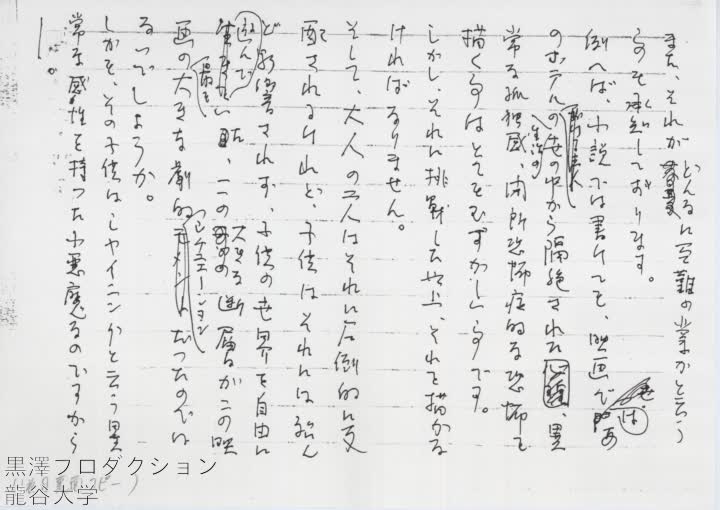 また、それがどんなに至難の業かと言う
事も承知しております。
例へば、小説では書けても、映画では、あ
のホテルの世の中から隔絶された、異
常な孤独感、閉所恐怖症的な恐怖を
描く事はとてもむずかしい事です。
しかし、それに挑戦した以上、それを描かな
ければなりません。
そして、大人の二人はそれに圧倒的に支
配されるけれど、子供はそれには殆ん
ど影響されず、子供の世界を自由に
遊んで、この大きな断層がこの映
画の最も大きな劇的シチュエーションだったのでは
ないでしょうか。
しかも、その子供はシャイニングと言う異
常な感性を持った小悪魔なのですから
黒澤プロダクション
龍谷大学